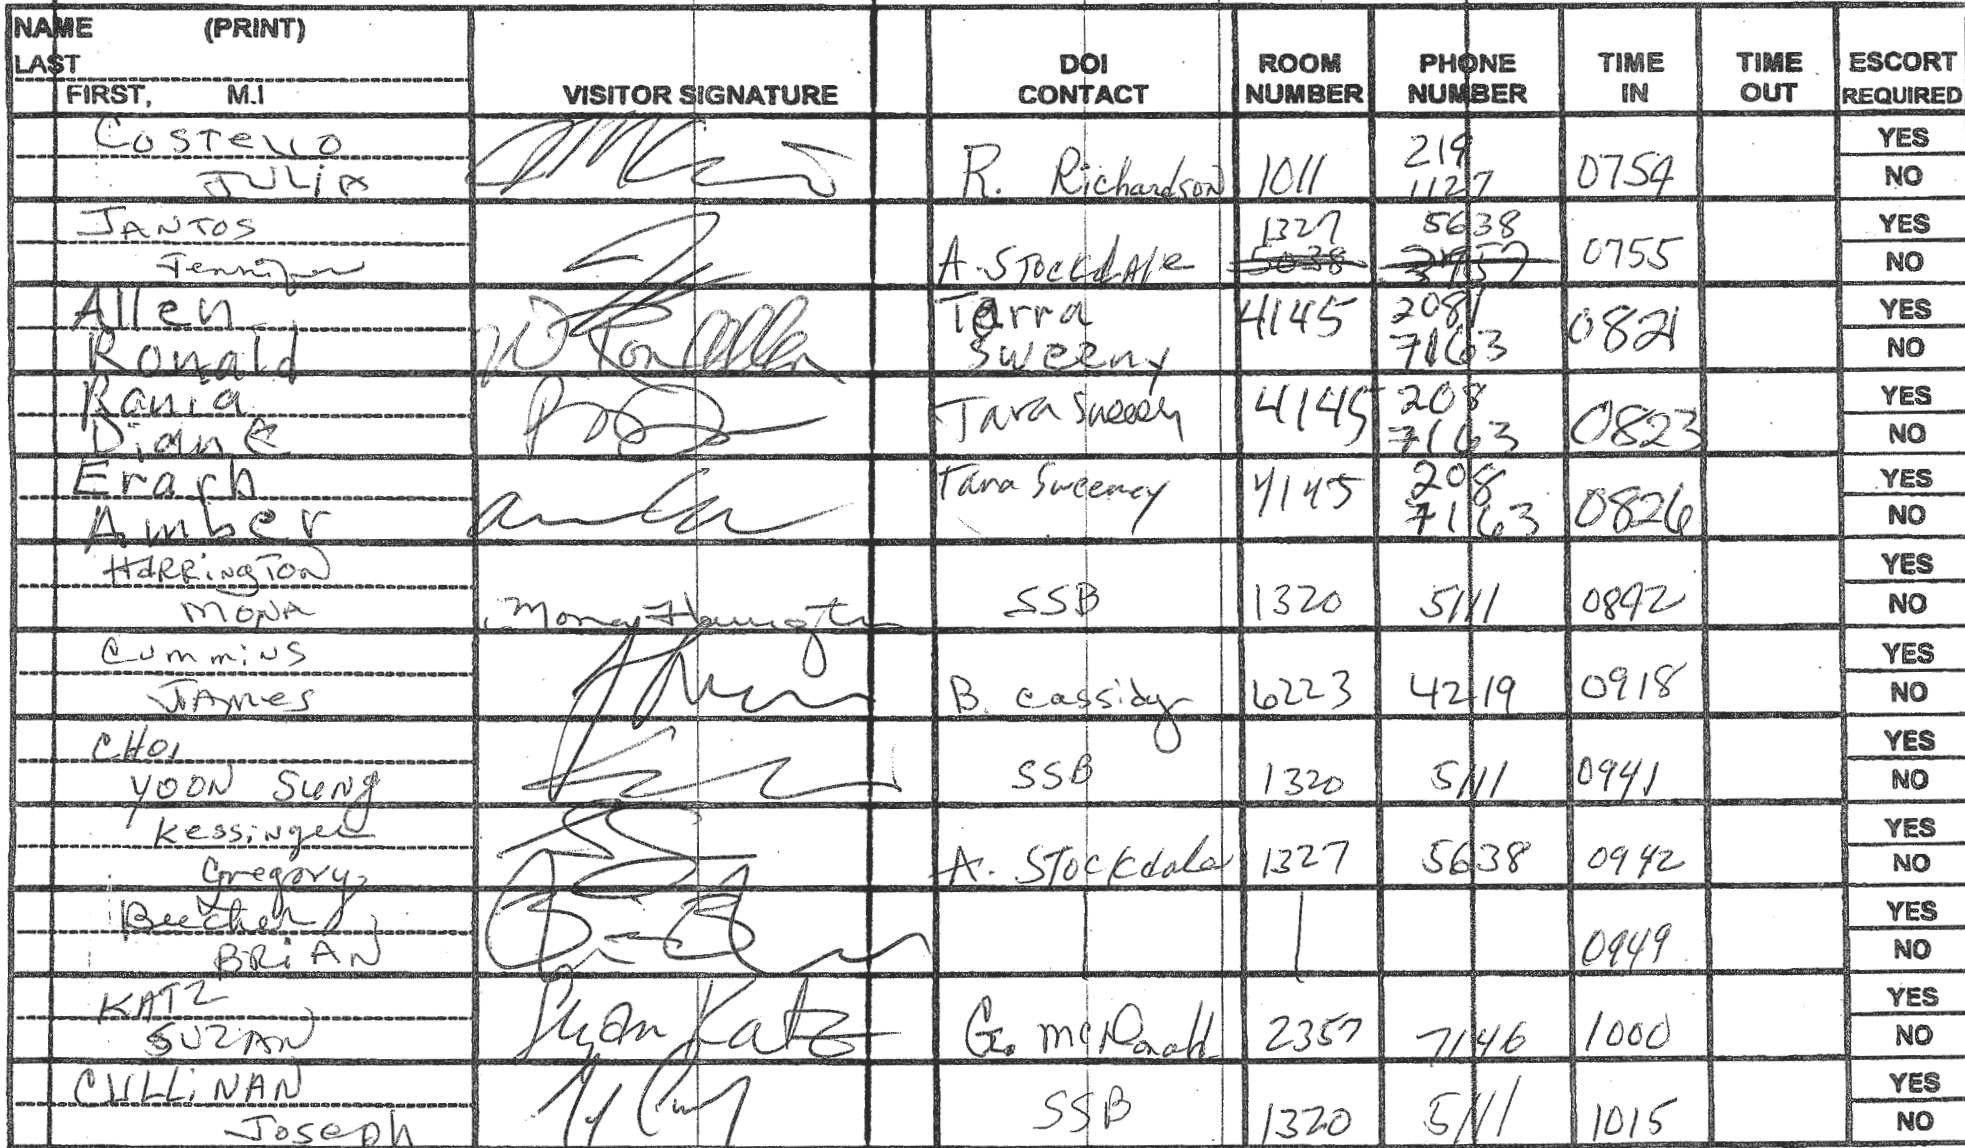 NAME (PRINT)
LAST
FIRST, M.I
VISITOR SIGNATURE
DOI CONTACT
ROOM NUMBER
PHONE NUMBER
TIME IN
TIME OUT
ESCORT REQUIRED
Costello
Julia
R. Richardson 1011 219 1127 0754 YES NO
JANTOS
Jennifer
A. Stockdale 1327 5638 0755 YES NO
Allen
Ronald
Ron Allen
Tarra Sweeny 4145 208 7163 0821 YES NO
Rania
Diane
Tara Sweeney 4145 208 7163 0823 YES NO
Amber
Tara Sweeney 4145 208 7163 0826 YES NO
HARRINGTON
MONA
Mona Harrington
SSB 1320 5111 0842 YES NO
Cummins
JAMES
B. Cassidy 6223 4219 0918 YES NO
CHOI
YOON SUNG
SSB 1320 5111 0941 YES NO
Kessinger
Gregory
A. Stockdale 1327 5638 0942 YES NO
Beecher
BRIAN
0949 YES NO
KATZ
SUZAN
Suzan Katz
G. McDonald 2357 7146 1000 YES NO
CULLINAN
Joseph
SSB 1320 5111 1015 YES NO